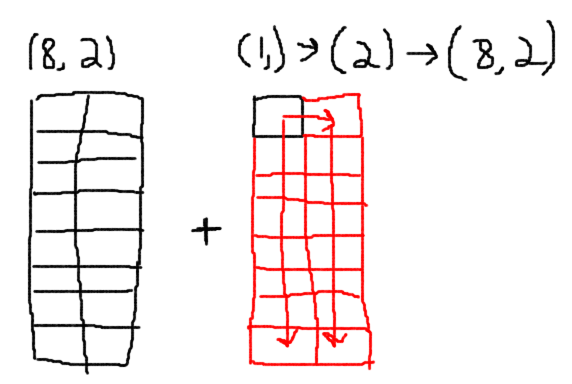 (8, 2) (1,) → (2) → (8, 2)
+